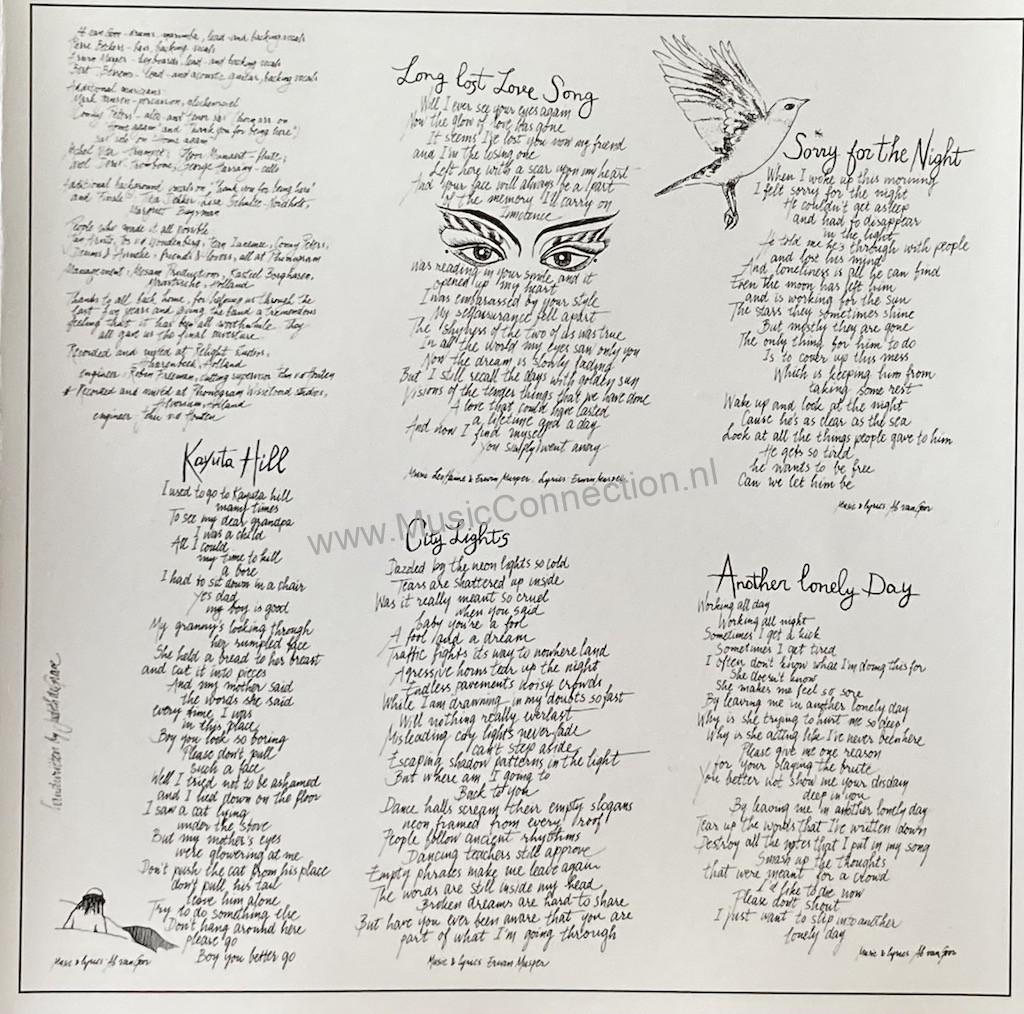 drums, marimba, lead and backing vocals
bass, backing vocals
keyboards, lead and backing vocals
lead and acoustic guitar, backing vocals
Additional musicians:
Home again" and "Thank you for being here")
on "Home again"
Additional background vocals on "Thank you for being here"
and "Finale":
People who made it all possible
friends & lovers, all at Phonogram
Management: Productions, Kasteel Borgharen,
Maastricht, Holland
Thanks to all back home, for helping us through the
last five years and giving the band a tremendous
feeling that it has been all worthwhile. They
all gave us the final overture.
Recorded and mixed at Relight studios,
Hilvarenbeek, Holland
engineer: Robin Freeman, cutting supervisor
* Recorded and mixed at Phonogram Wisseloord studios,
Hilversum, Holland
engineer
Kayuta Hill
I used to go to Kayuta hill
many times
To see my dear grandpa
I was a child
All I could
my time to kill
a bore
I had to sit down in a chair
Yes dad
my boy is good
My granny's looking through
her rumpled face
She held a bread to her breast
and cut it into pieces
And my mother said
the words she said
every time I was
in this place
Boy you look so boring
Please don't pull
such a face
Well I tried not to be ashamed
and I lied down on the floor
I saw a cat lying
under the stove
But my mother's eyes
were glowering at me
Don't push the cat from his place
don't pull his tail
leave him alone
Try to do something else
Don't hang around here
please go
Boy you better go
Music & lyrics Ab van Goor
handwritten by
Long lost Love Song
Will I ever see your eyes again
Now the glow of love has gone
It seems I've lost you now my friend
and I'm the losing one
Left here with a scar upon my heart
And your face will always be a part
Of the memory I'll carry on
Innocence
Was reading in your smile and it
opened up my heart
I was embarassed by your style
My selfassurance fell apart
The shyness of the two of us was true
In all the world my eyes saw only you
Now the dream is slowly fading
But I still recall the days with golden sun
Visions of the tender things that we have done
A love that could have lasted
a lifetime and a day
And now I find myself
You simply went away
Music Leo Haine & Erwin Musper. Lyrics Erwin Musper
www.MusicConnection.nl
City Lights
Dazzled by the neon lights so cold
Tears are shattered up inside
Was it really meant so cruel
when you said
baby you're a fool
A fool and a dream
Traffic fights its way to nowhere land
Agressive horns tear up the night
Endless pavements noisy crowds
While I am drawning in my doubts so fast
Will nothing really everlast
Misleading city lights never fade
can't step aside
Escaping shadow patterns in the light
But where am I going to
Back to you
Dance halls scream their empty slogans
neon framed from every roof
People follow ancient rhythms
Dancing teachers still approve
Empty phrases make me leave again
The words are still inside my head
Broken dreams are hard to share
But have you ever been aware that you are
part of what I'm going through
Music & lyrics Erwin Musper
Sorry for the Night
When I woke up this morning
I felt sorry for the night
He couldn't get asleep
and had to disappear
in the light
He told me he's through with people
and lost his mind
And loneliness is all he can find
Even the moon has left him
and is working for the sun
The stars they sometimes shine
But mostly they are gone
The only thing for him to do
Is to cover up this mess
Which is keeping him from
taking some rest
Wake up and look at the night
Cause he's as clear as the sea
Look at all the things people gave to him
He gets so tired
he wants to be free
Can we let him be
Music & lyrics Ab van Goor
Another lonely Day
Working all day
Working all night
Sometimes I get a kick
Sometimes I get tired
I often don't know what I'm doing this for
She doesn't know
She makes me feel so sore
By leaving me in another lonely day
Why is she trying to hurt me so deep
Why is she acting like I've never been here
Please give me one reason
for your playing the brute
You better not show me your disdain
deep in you
By leaving me in another lonely day
Tear up the words that I've written down
Destroy all the notes that I put in my song
Smash up the thoughts
that were meant for a crowd
I'd like to die now
Please don't shout
I just want to slip into another
lonely day
Music & lyrics Ab van Goor